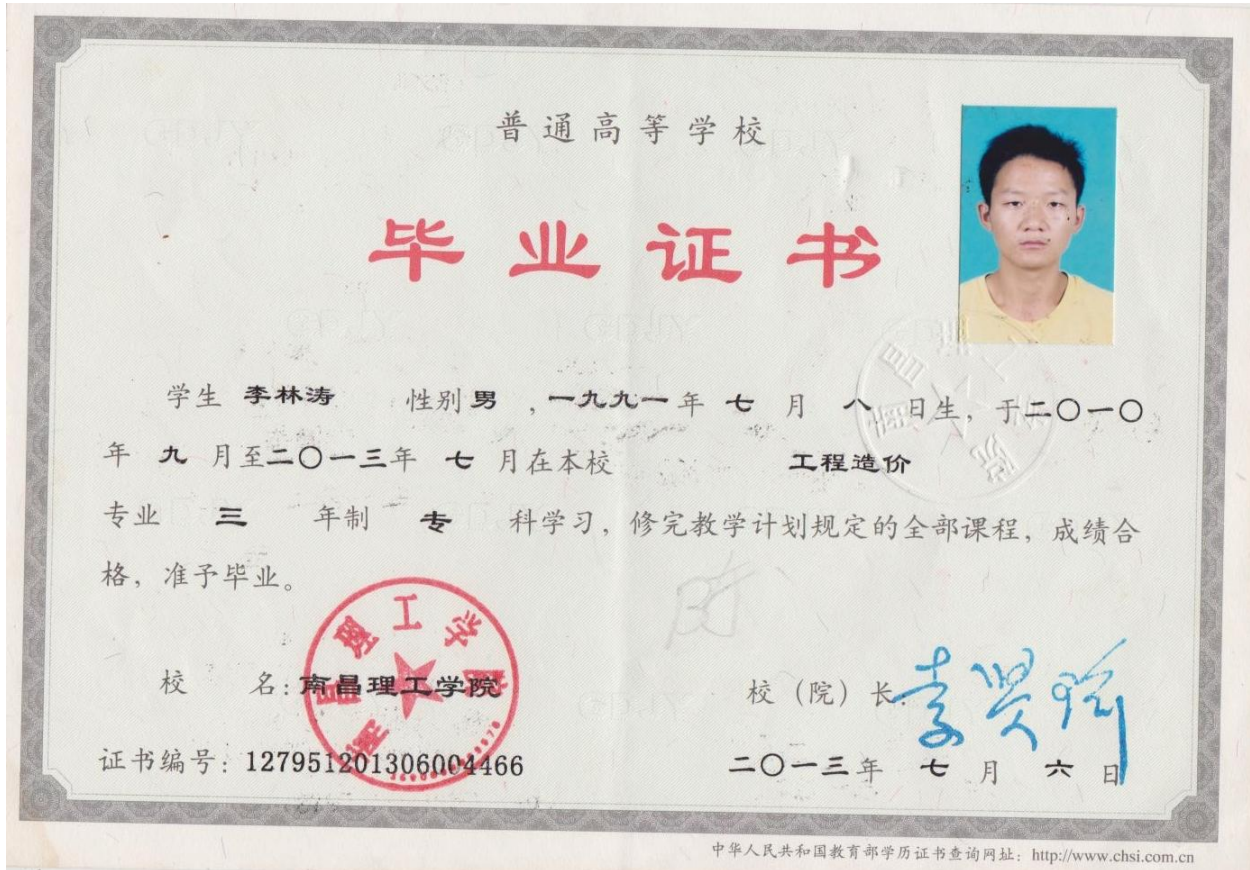 普通高等学校
毕业证书
学生 李林涛 性别 男 ,一九九一年 七 月 八 日生，于二〇一〇
年 九 月至二〇一三年 七 月在本校 工程造价
专业 三 年制 专 科学习，修完教学计划规定的全部课程，成绩合
格，准予毕业。
校 名：南昌理工学院 校（院）长：
证书编号：127951201306004466 二〇一三年 七 月 六 日
中华人民共和国教育部学历证书查询网址：http://www.chsi.com.cn